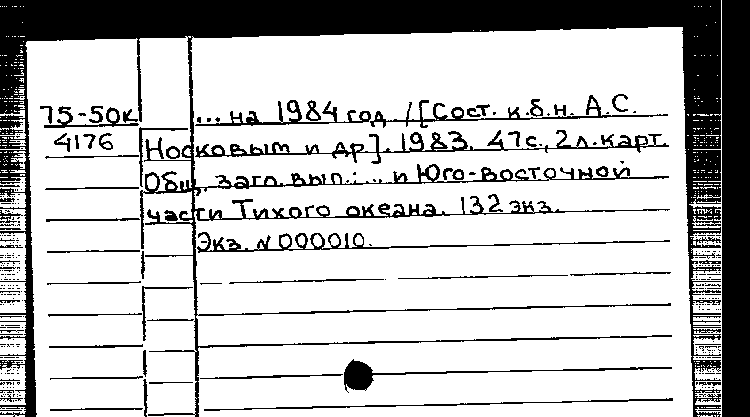 75-50к ... на 1984 год /[Сост. к.б.н. А.С.
4176 Носковым и др]. 1983. 47с, 2л. карт.
Общ. загл. вып.: ... и Юго-Восточной
части Тихого океана. 132 экз.
Экз. N 000010.